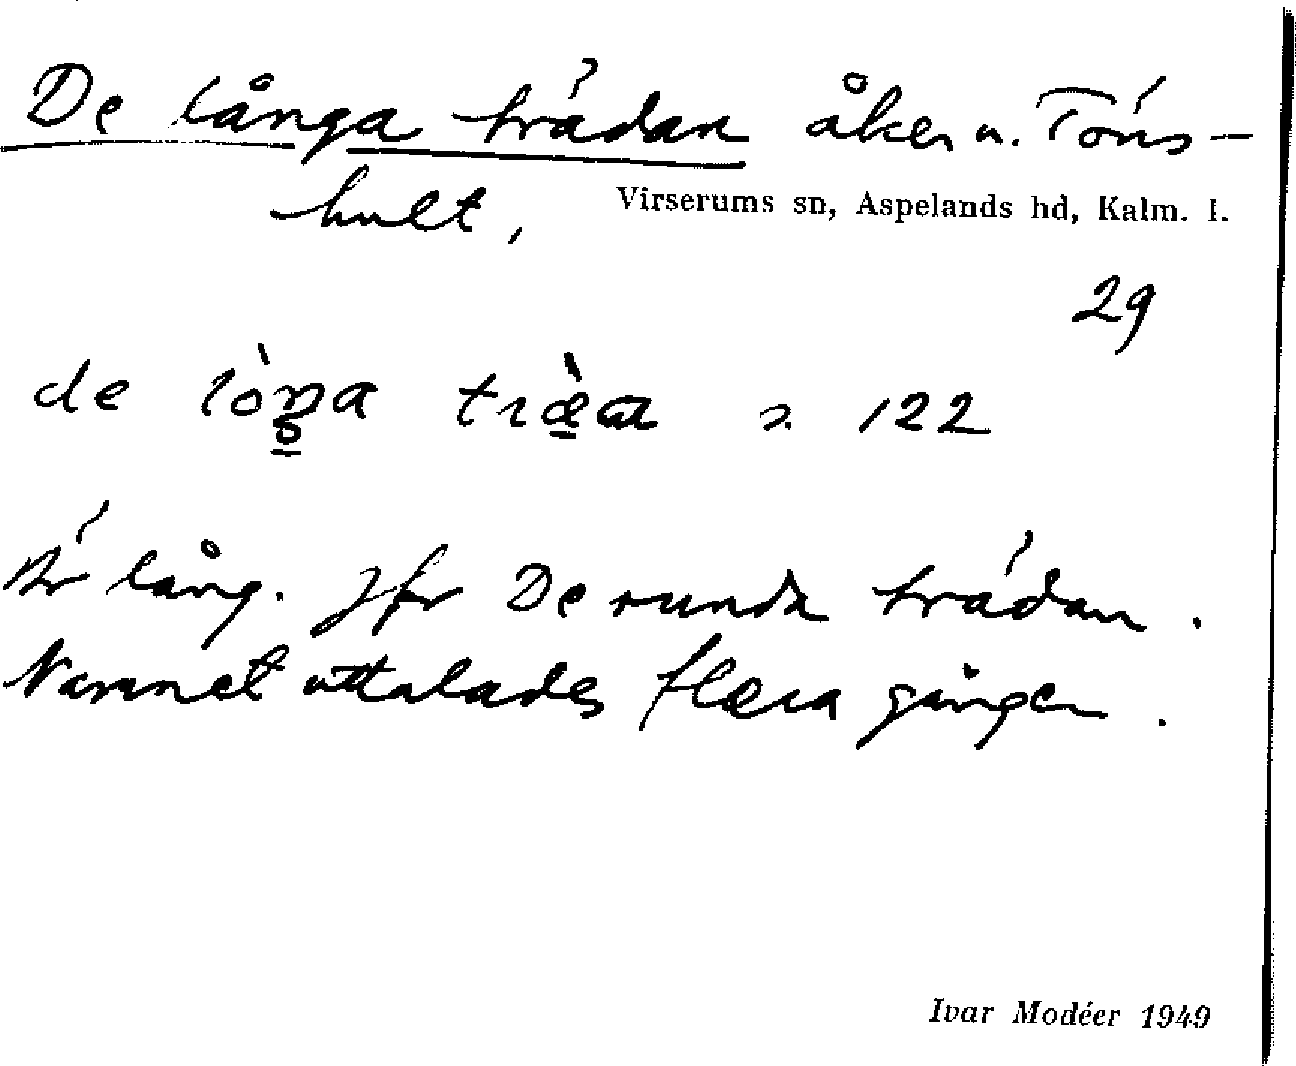 De långa trädan åker u. Töns-
hult,
Virserums sn, Aspelands hd, Kalm. l.
29
de lòŋa træ̀a s. 122
Är lång. Jfr De runda trädan.
Namnet uttalades flera gånger.
Ivar Modéer 1949